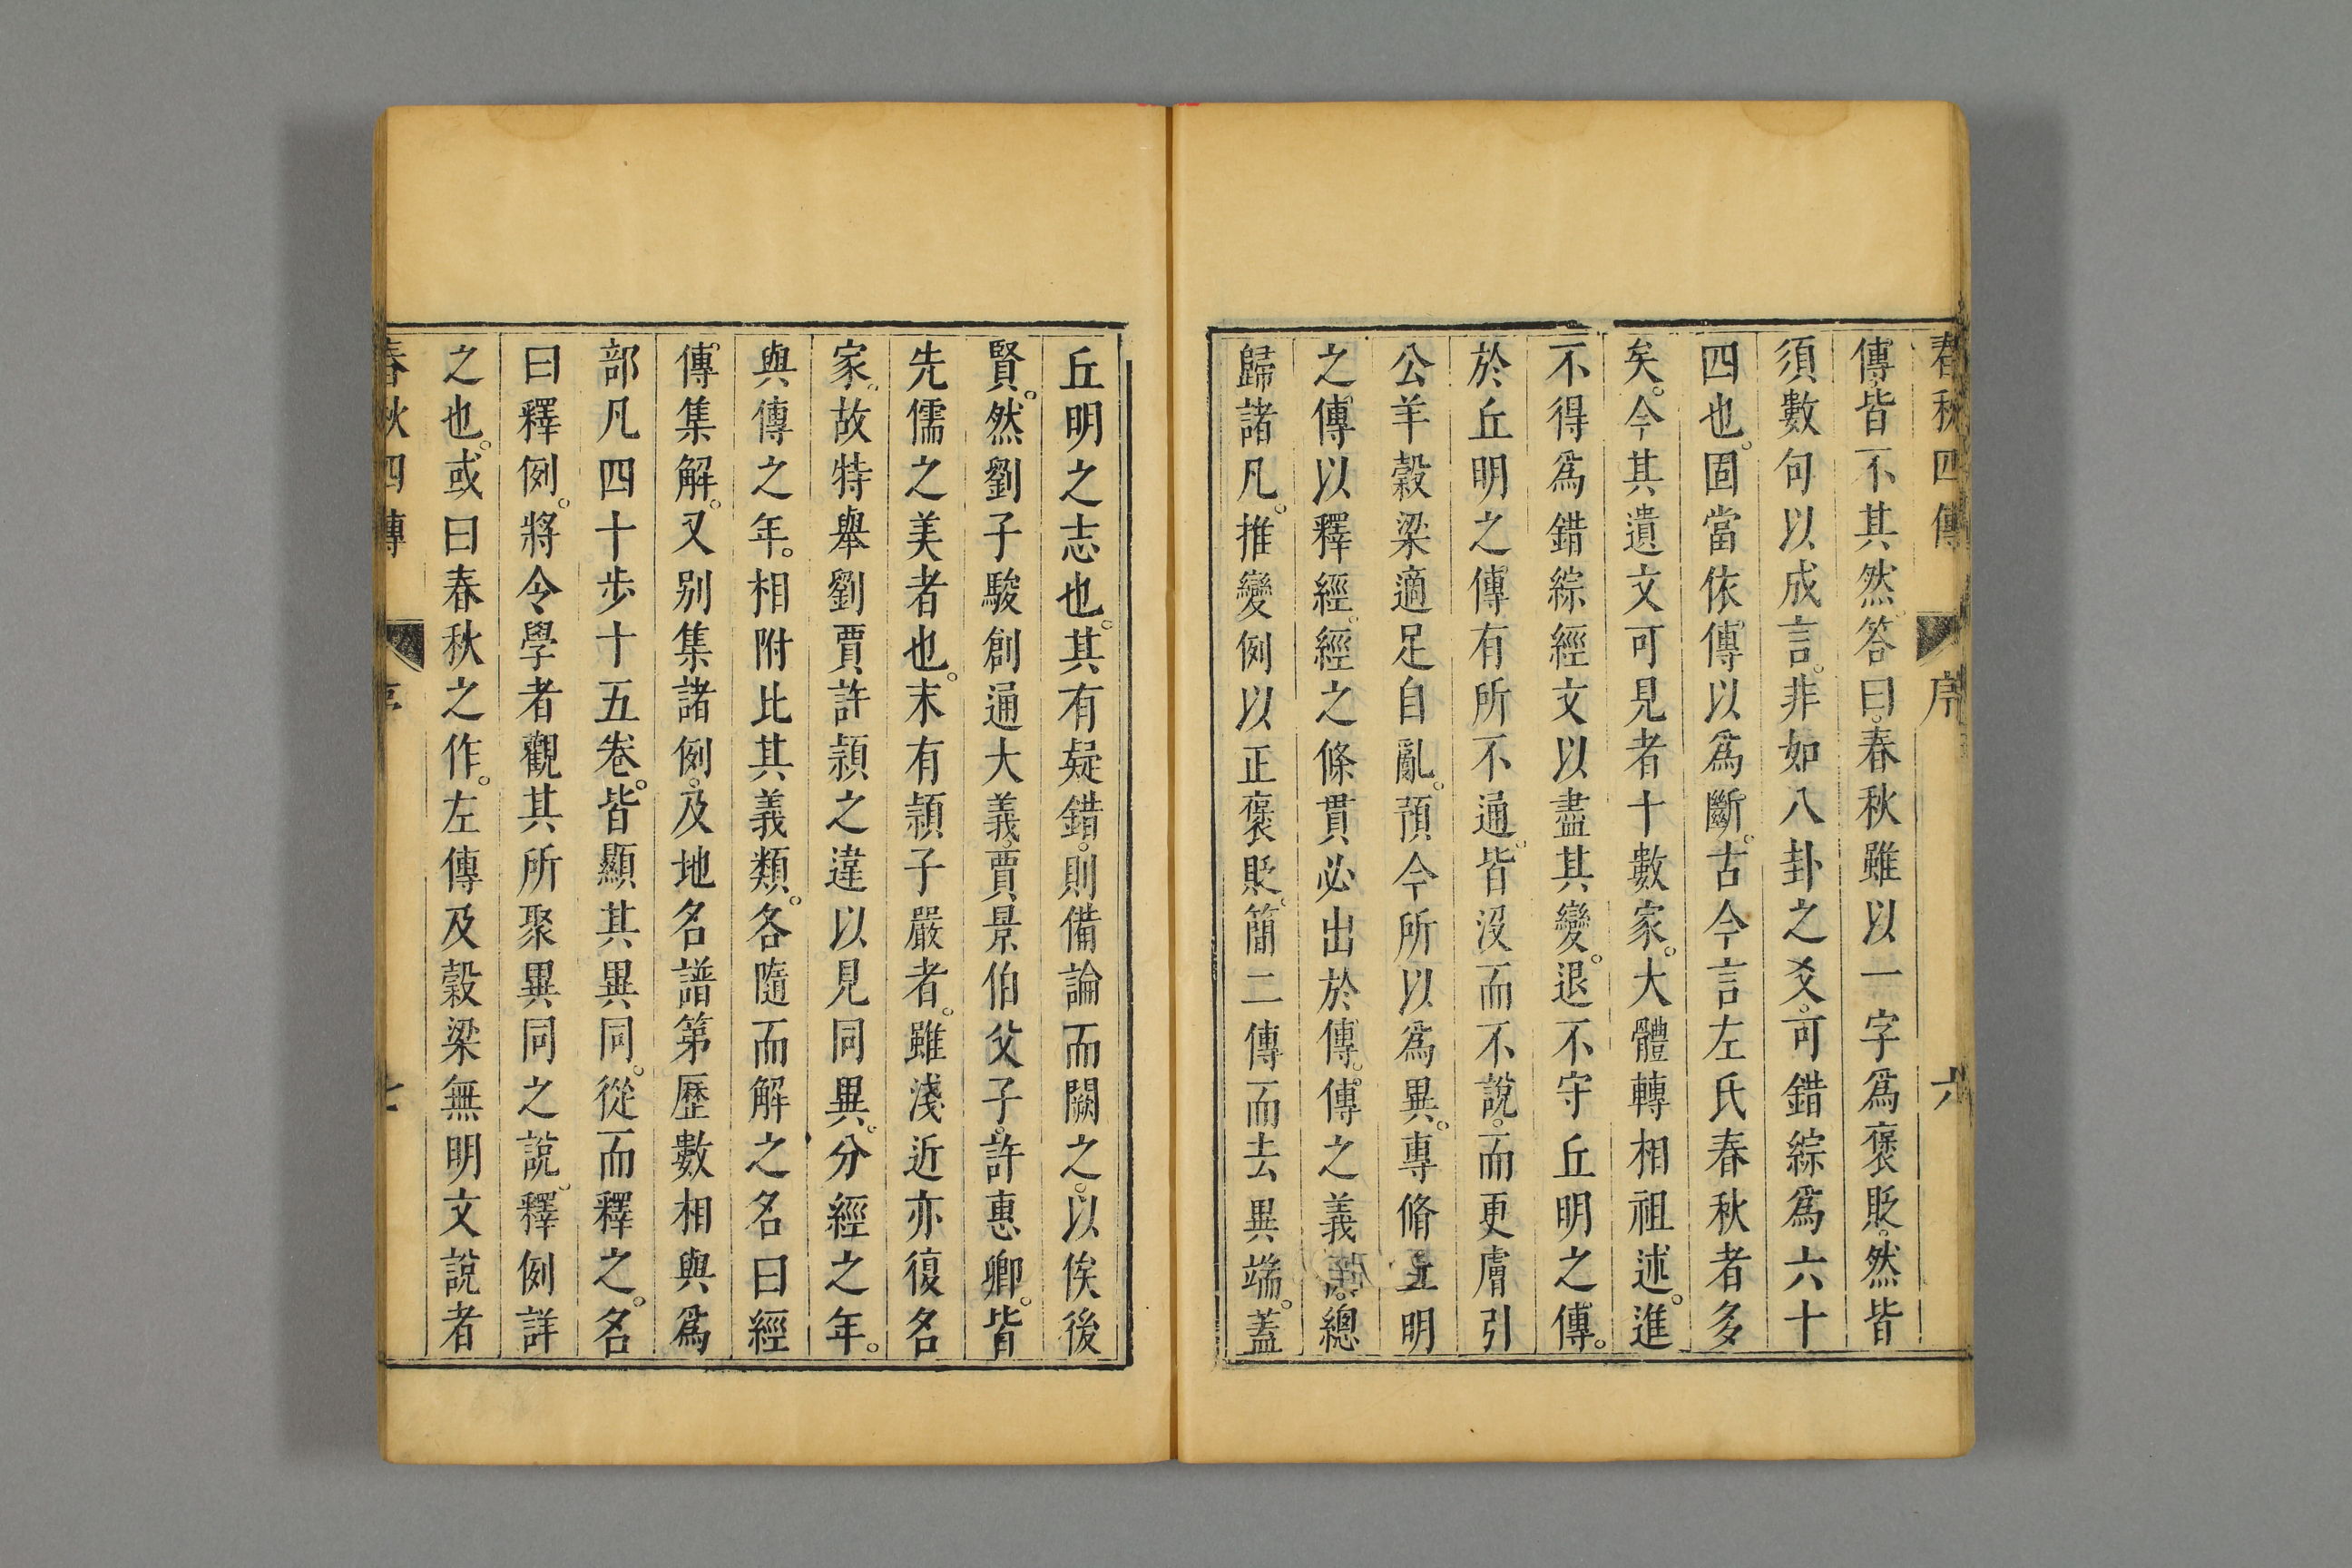 春秋四傳 序 六
傳。皆不其然。答曰。春秋雖以一字爲褒貶。然皆
須數句以成言。非如八卦之爻。可錯綜爲六十
四也。固當依傳以爲斷。古今言左氏春秋者多
矣。今其遺文可見者十數家。大體轉相祖述。進
不得爲錯綜經文以盡其變。退不守丘明之傳。
於丘明之傳有所不通。皆沒而不說。而更膚引
公羊穀梁適足自亂。預今所以爲異。專脩丘明
之傳以釋經。經之條貫必出於傳。傳之義。總
歸諸凡。推變例以正褒貶。簡二傳而去異端。蓋
丘明之志也。其有疑錯。則備論而闕之。以俟後
賢。然劉子駿創通大義。賈景伯父子。許惠卿。皆
先儒之美者也。末有頴子嚴者。雖淺近亦復名
家。故特舉劉賈許頴之違以見同異。分經之年。
與傳之年。相附比其義類。各隨而解之名曰經
傳集解。又別集諸例。及地名譜第歷數相與爲
部凡四十步十五卷。皆顯其異同。從而釋之。名
曰釋例。將令學者觀其所聚異同之說。釋例詳
之也。或曰春秋之作。左傳及穀梁無明文說者
春秋四傳 序 七